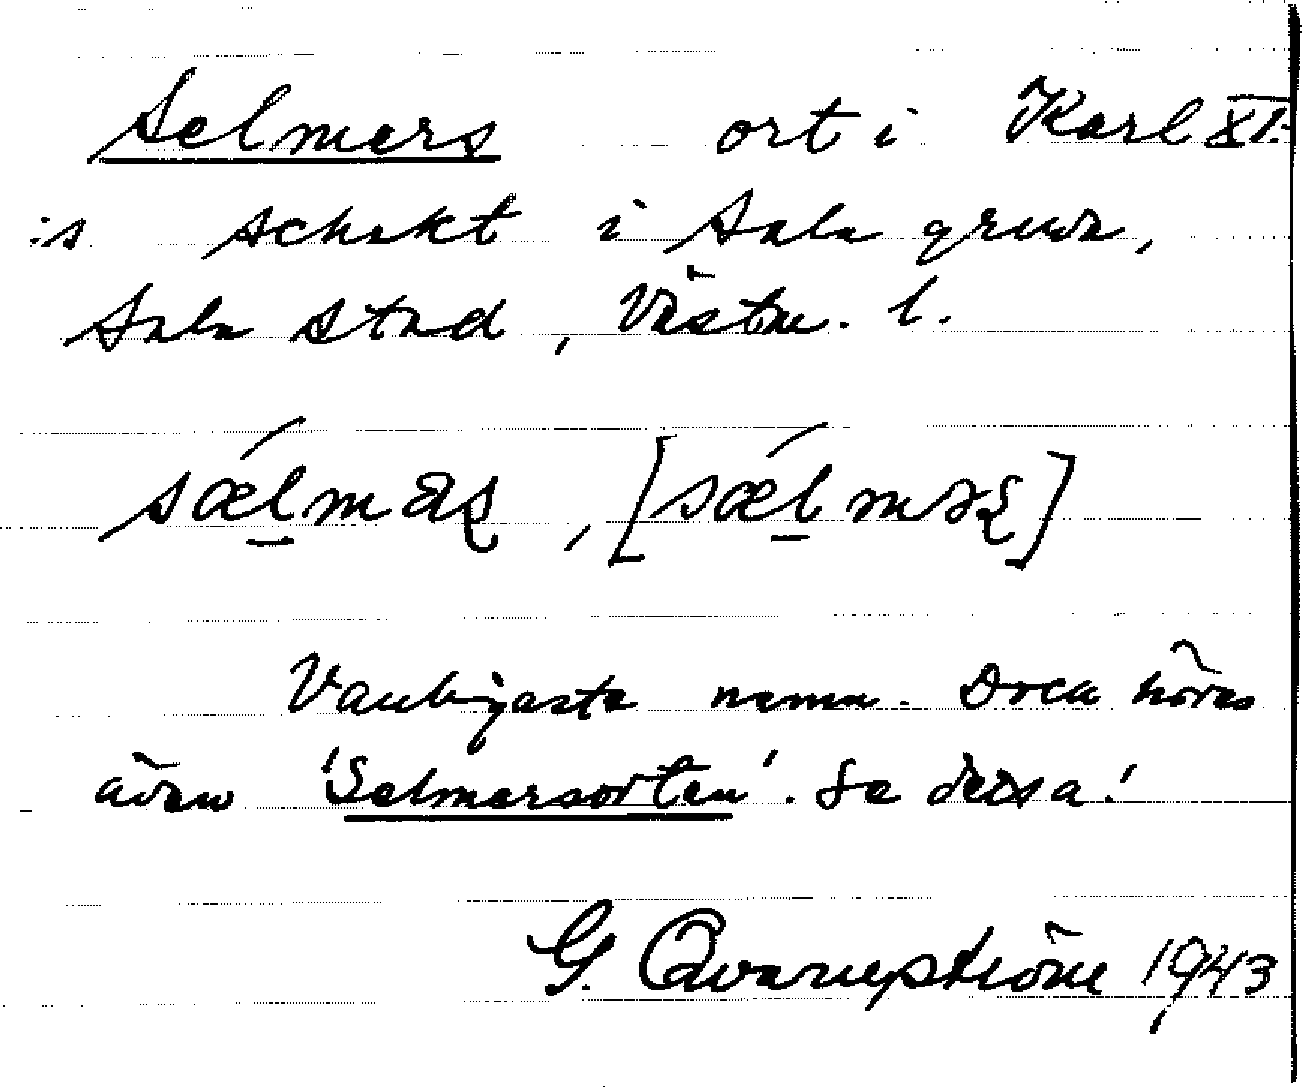 Selmers ort i Karl XI:
is schakt i Sala gruva,
Sala stad, Västm. l.
sǽl̠mas, [sǽl̠məs]
Vanligaste namn. Dock höres
även 'Selmersorten'. Se dessa!
G. Qvarnström 1943